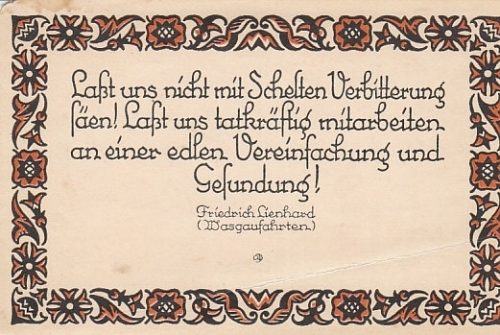 Laßt uns nicht mit Schelten Verbitterung
säen! Laßt uns tatkräftig mitarbeiten
an einer edlen Vereinfachung und
Gesundung!
Friedrich Lienhard
(Wasgaufahrten)